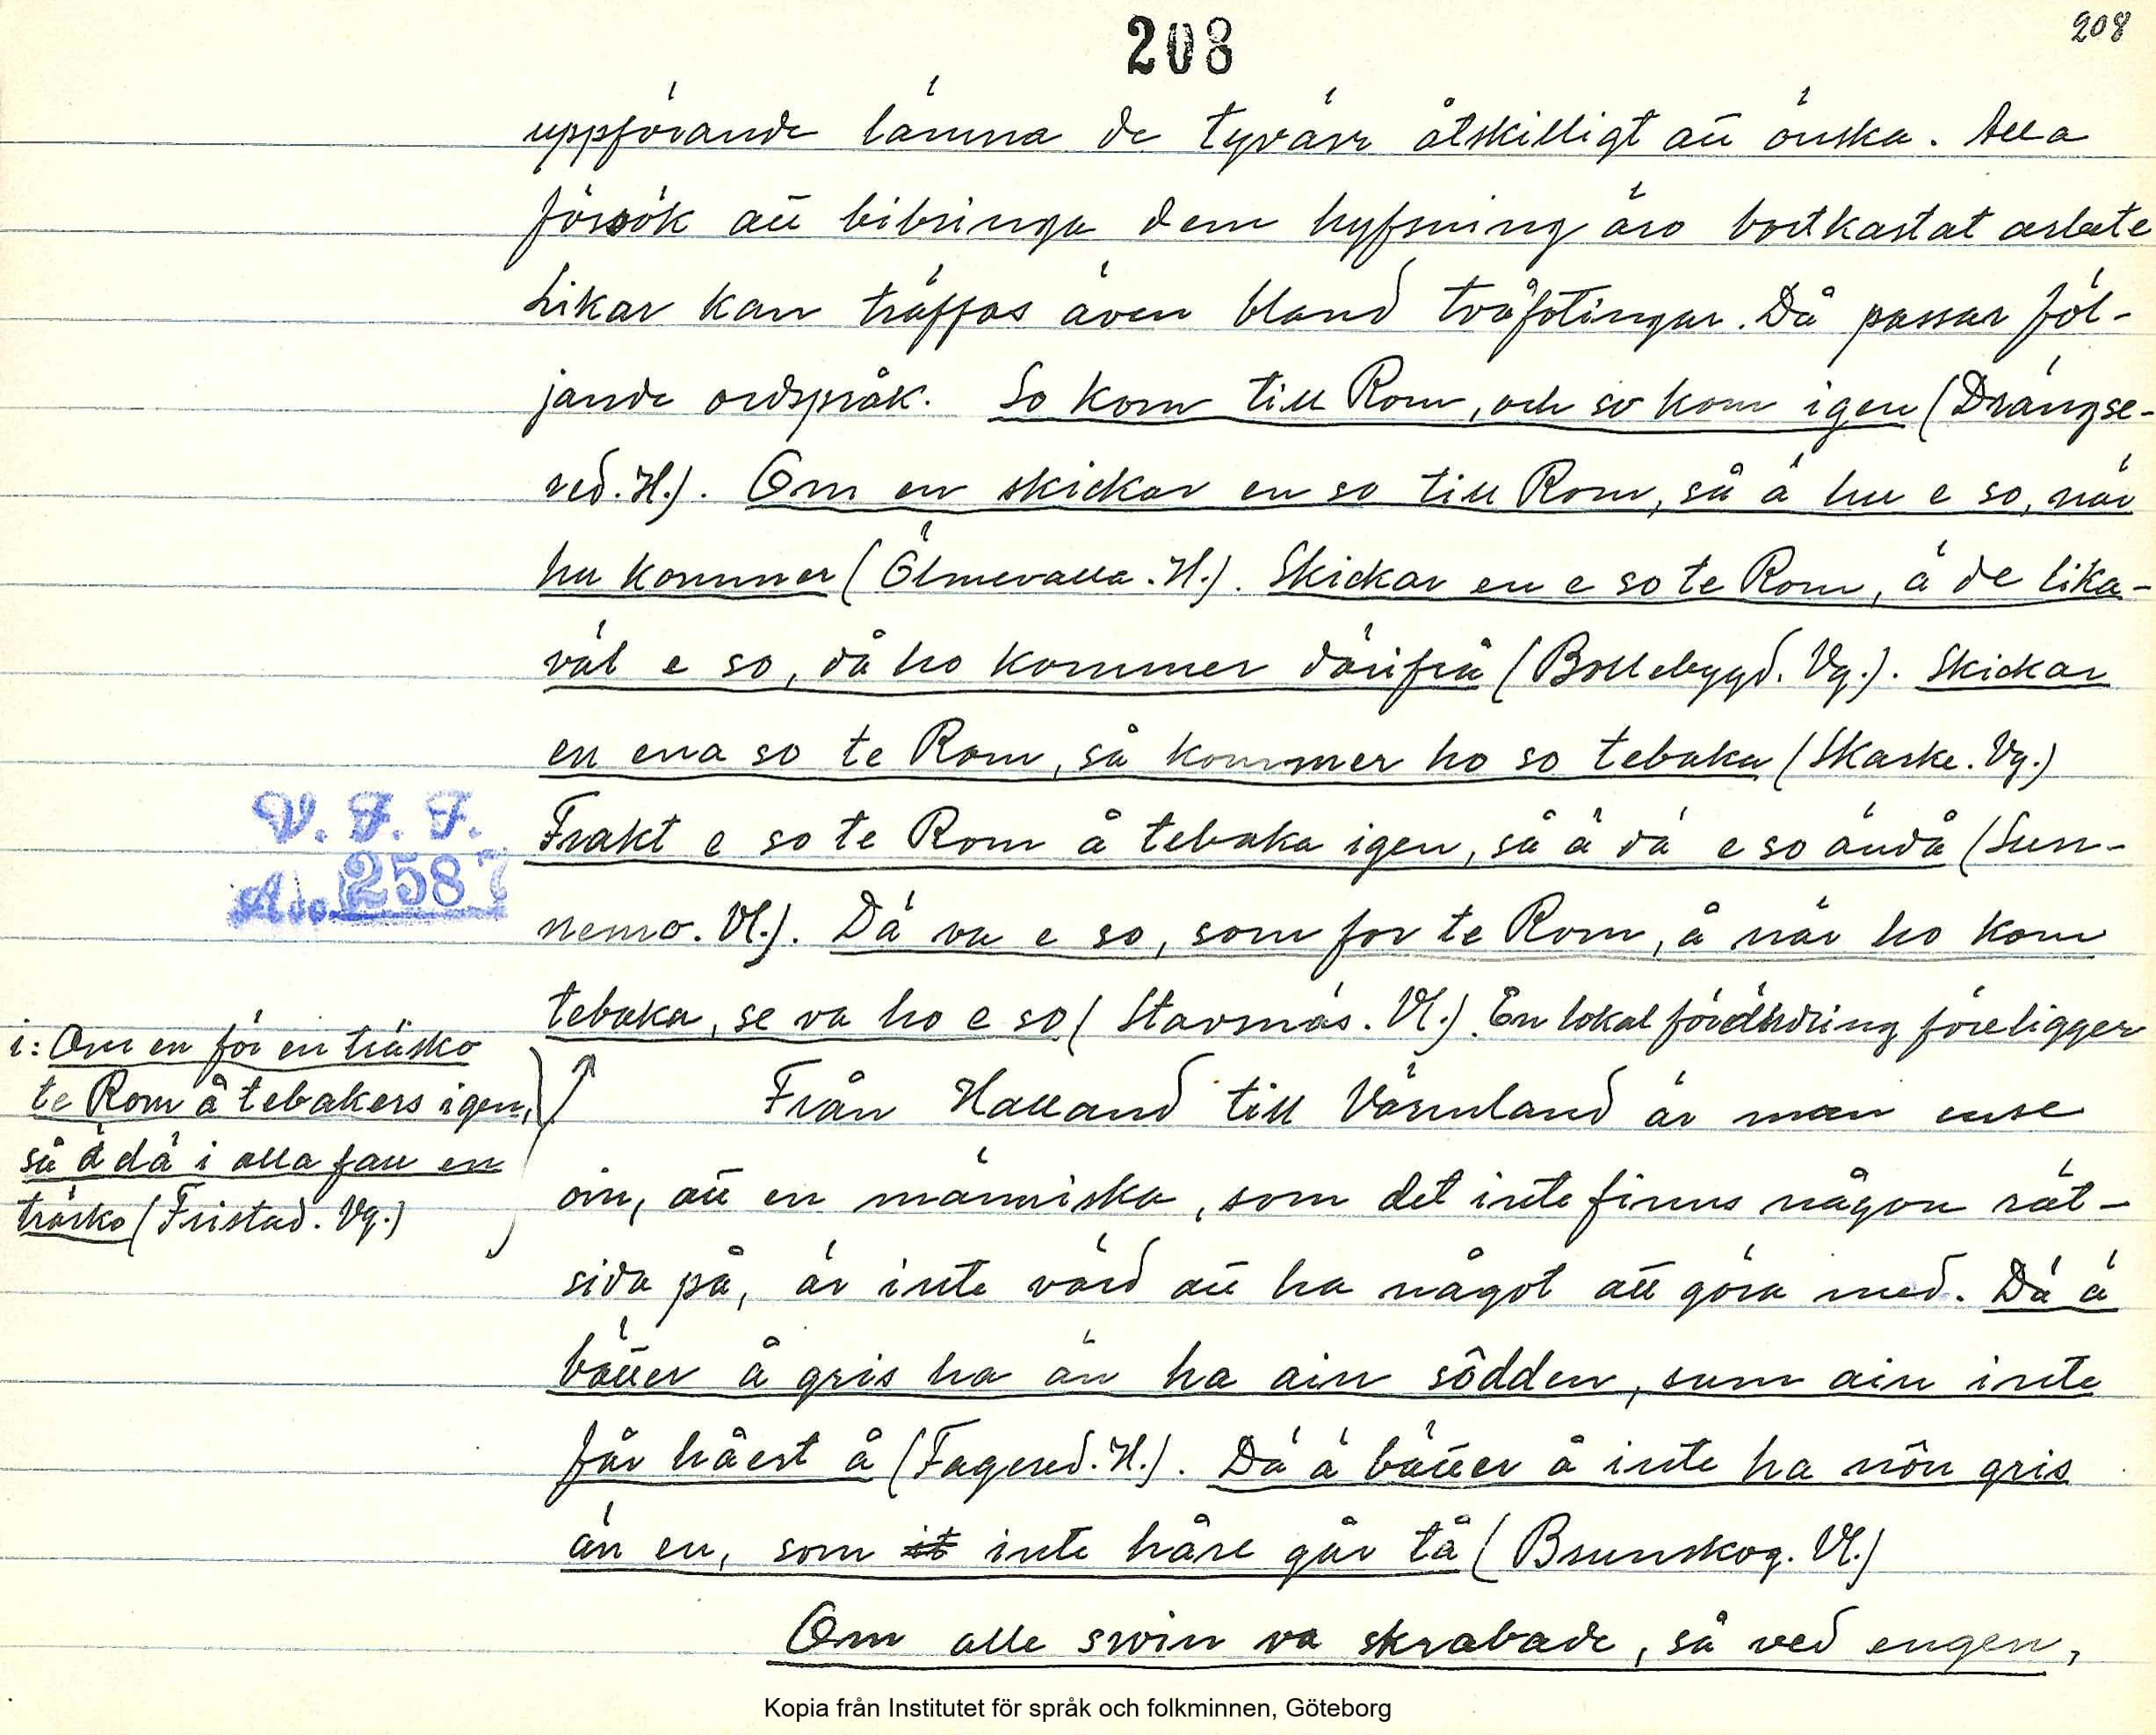 208
208
uppförande lämna de tyvärr åtskilligt att önska. Alla
försök att bibringa dem hyfsning äro bortkastat arbete
Likar kan träffas även bland tvåfotingar. Då passar föl-
jande ordspråk. So kom till Rom, och so kom igen (Drängse-
red. H.). Om en skickar en so till Rom, så ä hu e so, när
hu kommer (Ölmevalla. H.). Skickar en e so te Rom, ä de lika-
väl e so, då ho kommer därifrå (Bollebygd. Vg.). Skickar
en ena so te Rom, så kommer ho so tebaka (Skarke. Vg.)
Frakt e so te Rom å tebaka igen, så ä dä e so ändå (Sun-
nemo. Vl.). Dä va e so, som for te Rom, å när ho kom
tebaka, se va ho e so (Stavnäs. Vl.). En lokal förändring föreligger
i: Om en för en träsko
te Rom å tebakers igen,
så ä dä i alla fall en
träsko (Fristad. Vg.)
Från Halland till Värmland är man ense
om, att en människa, som det inte finns någon rät-
sida på, är inte värd att ha något att göra med. Dä ä
bätter å gris ha än ha ain södden, sum ain inte
får håest å (Fagered. H.). Dä ä bätter å inte ha nôn gris
än en, som it inte håre går tå (Brunskog. Vl.)
Om alle svin va skrabade, så ved engen,
V. F. F.
Acc. 2587
Kopia från Institutet för språk och folkminnen, Göteborg